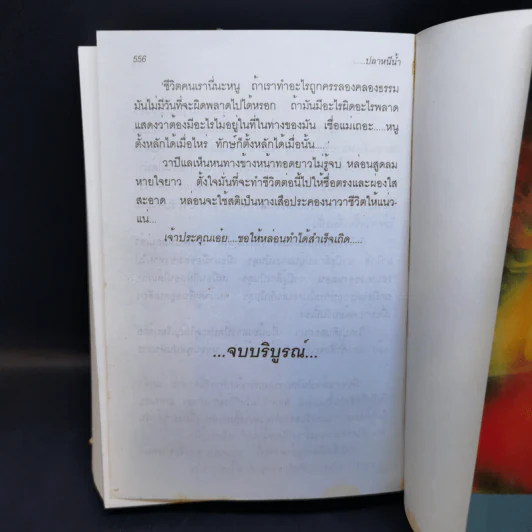 556
.....ปลาหนีน้ำ
'ชีวิตคนเรานี่นะหนู ถ้าเราทำอะไรถูกครรลองคลองธรรม
มันไม่มีวันที่จะผิดพลาดไปได้หรอก ถ้ามันมีอะไรผิดอะไรพลาด
แสดงว่าต้องมีอะไรไม่อยู่ในที่ในทางของมัน เชื่อแม่เถอะ.....หนู
ตั้งหลักได้เมื่อไหร่ ทักษ์ก็ตั้งหลักได้เมื่อนั้น....'
วาปีแลเห็นหนทางข้างหน้าทอดยาวไม่รู้จบ หล่อนสูดลม
หายใจยาว ตั้งใจมั่นที่จะทำชีวิตต่อนี้ไปให้ซื่อตรงและผ่องใส
สะอาด หล่อนจะใช้สติเป็นหางเสือประคองนาวาชีวิตให้แน่ว
แน่...
เจ้าประคุณเอ๋ย....ขอให้หล่อนทำได้สำเร็จเถิด.....
...จบบริบูรณ์...